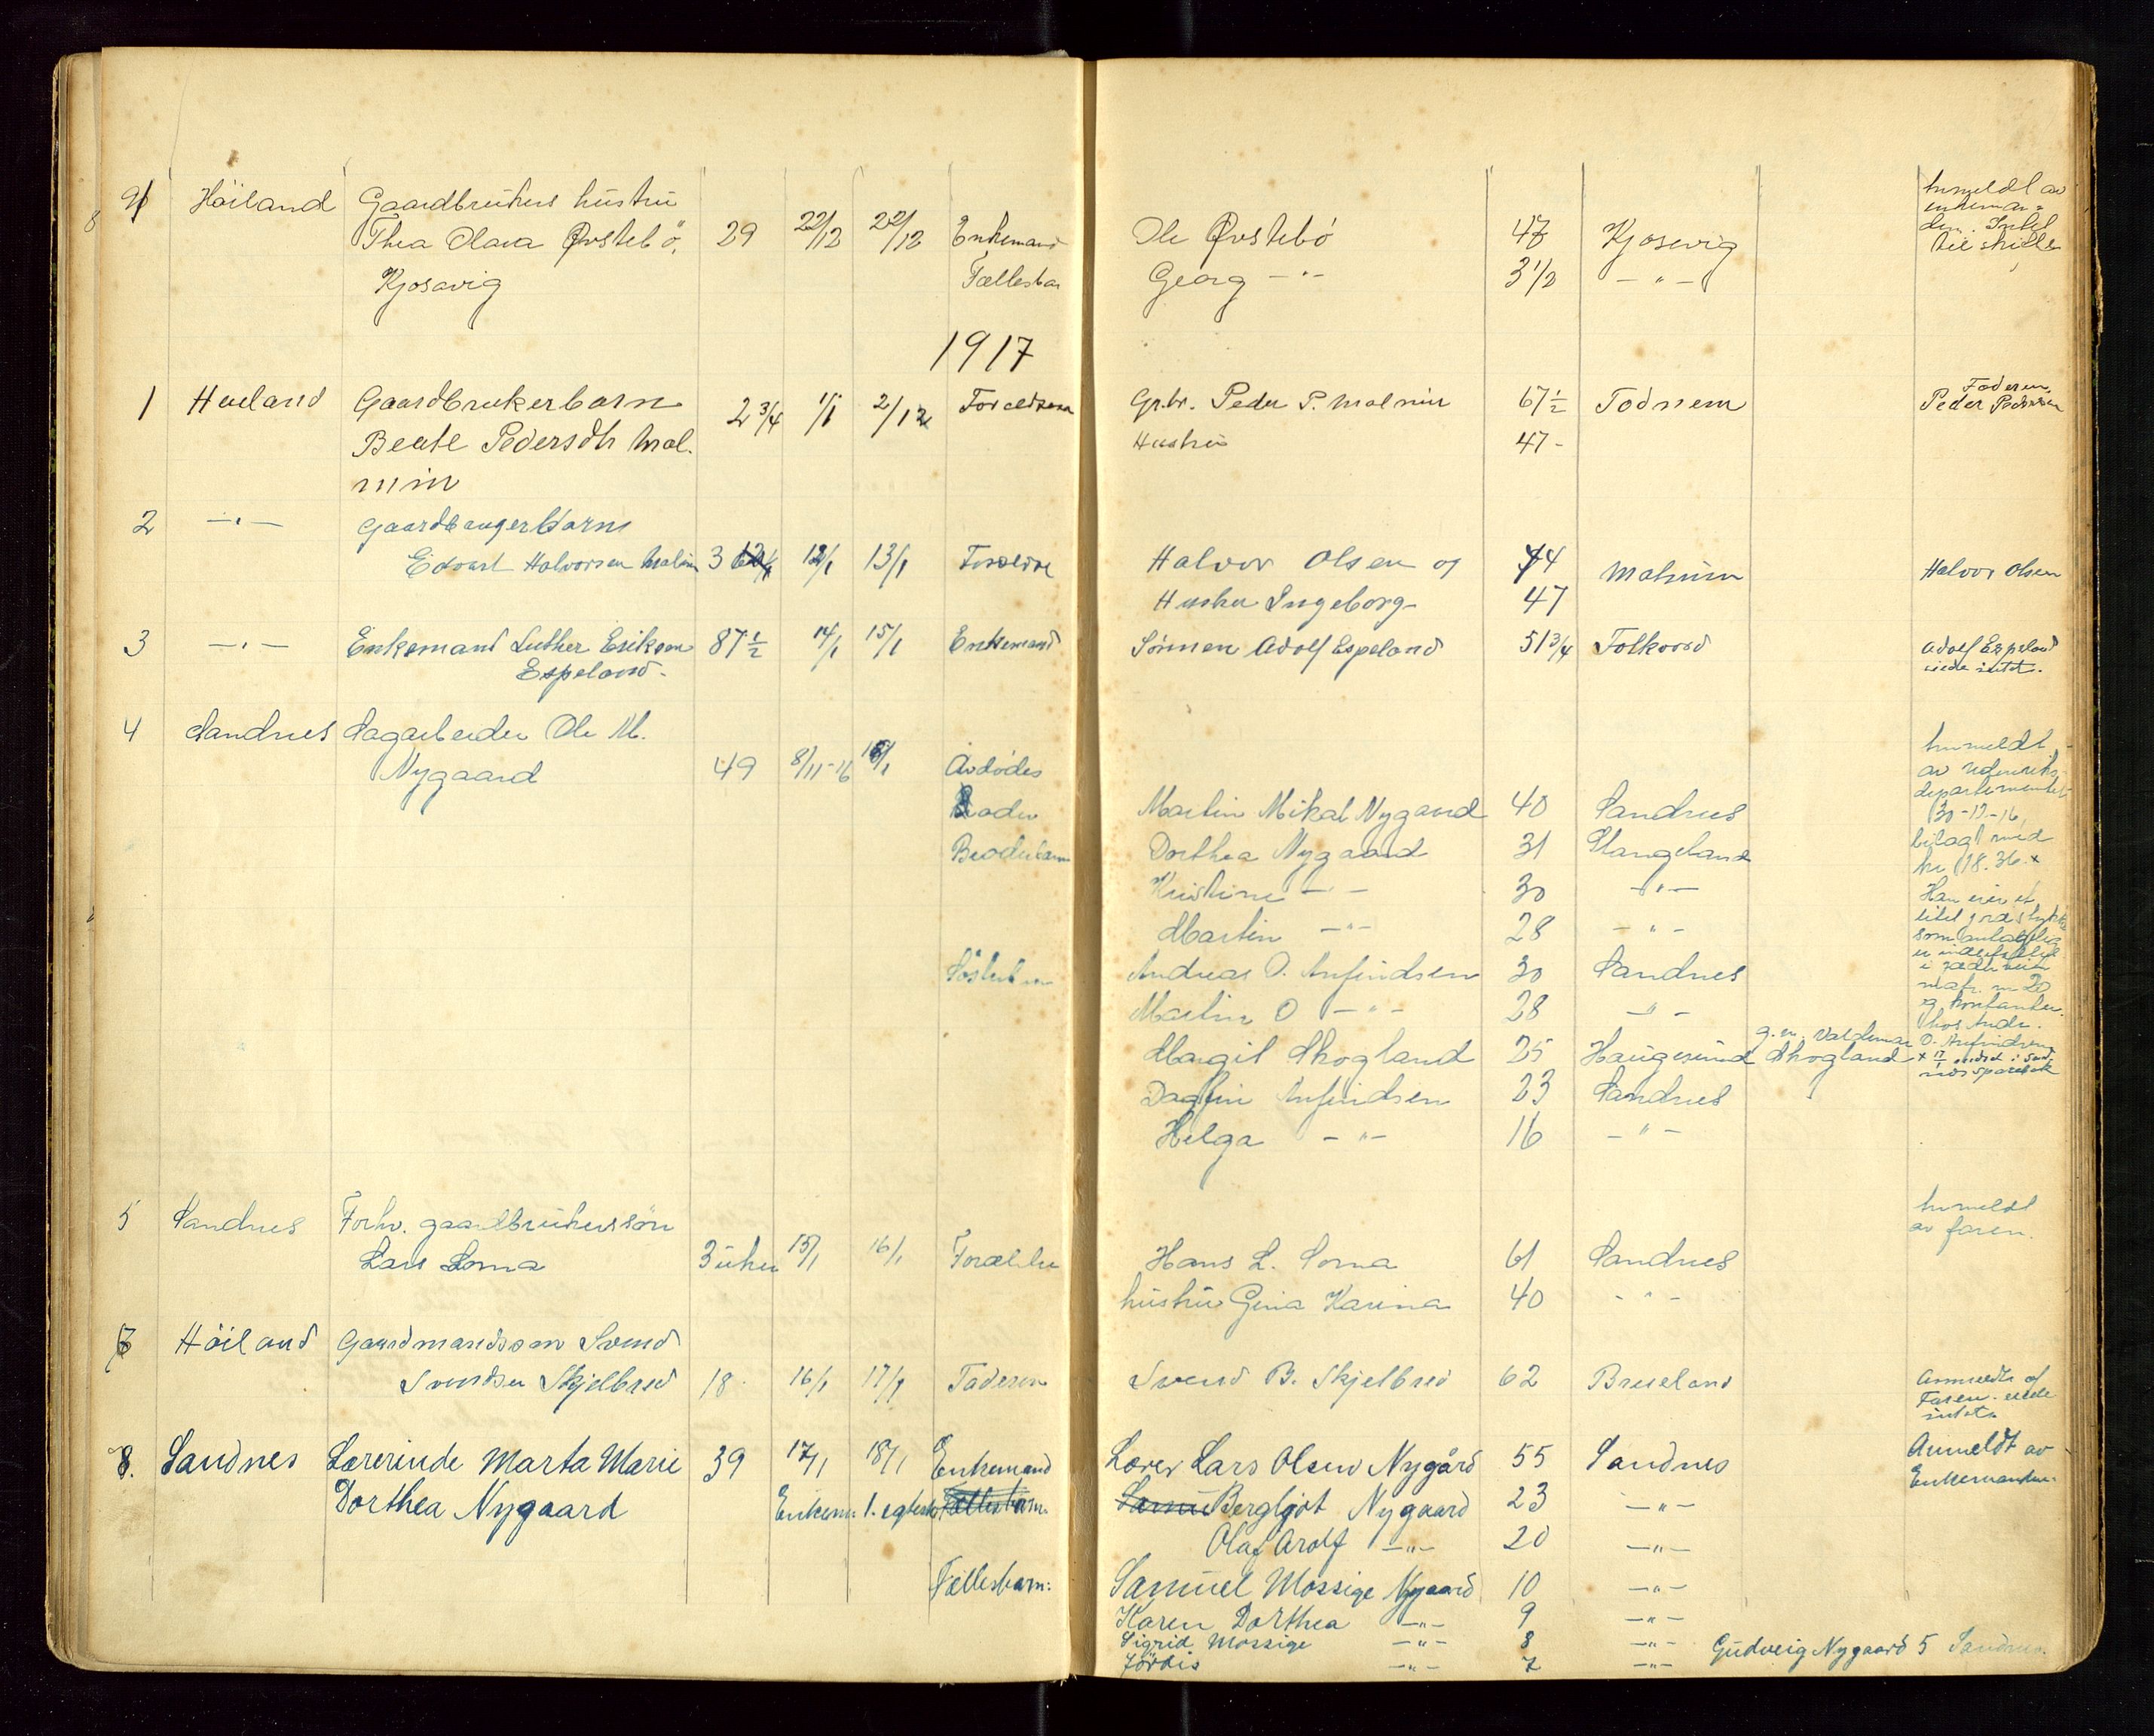 9 Höiland Gaardbrukers hustru
Thea Olava Øvstebö, 29 22/12 22/12 Enkemand Ole Øvstebö 47 Kjosavig Anmeldt av enkeman=den. Intet
Kjosavig Fællesbar Georg —"— 3 1/2 —"—
1917
1 Høiland Gaardbrukerbarn 2 3/4 1/1 2/1 Forældrene Gr.br. Peder P. Malmin 67 1/2 Todnem Faderen Peder Pedersen
Beate Pedersdtr Mal- Hustru 47 -
min
2 —"— Gaardbrugerbarn
Edvart Halvorsen Malmin 3 12/1 13/1 Forældre Halvor Olsen og 44 Malmim Halvor Olsen
Hustru Ingeborg 47
3 —"— Enkemand Luther Eriksen 87 1/2 14/1 15/1 Enkemand Sönnen Adolf Espeland 51 3/4 Folkvord Adolf Espeland
Espeland. eiede intet.
4 Sandnes Sagarbeider Ole M.
Nygaard 49 8/11-16 Avdödes Anmeldt
av utenriks-
departementet
Broder Martin Mikal Nygaard 40 Sandnes 30-12-16,
Broderbarn Dorthea Nygaard 31 Stangeland bilagt med
kr. 18.36. x
Kristine —"— 30 —"— Han eier et
Martin —"— 28 —"— litet jordstykke
som antagelig
Søsterbarn Andreas O. Anfindsen 30 Sandnes er
i
Martin O —"— 28 —"— matr. nr 20
og kontanter
hos Andr.
Margit Skogland 25 Haugesund g. m. Valdemar Skogland O. Anfindsen
x 17/1 indsat i Sand-
nes sparebank
Dagfin Anfindsen 23 Sandnes
Helga —"— 16 —"—
5 Sandnes Forhv. gaardbrukers sön Anmeldt
av faren.
Lars Soma 3 uker 15/1 16/1 Forældre Hans L. Soma 61 Sandnes
hustru Gina Karina 40 —"—
Höiland Gaardmandssøn Svend
Svendsen Skjelbred 18 16/1 17/1 Faderen Svend B. Skjelbred 62 Brueland Anmeldt af
Faren. eiede
intet.
8. Sandnes Lærerinde Marta Marie 39 17/1 18/1 Enkemand Lærer Lars Olsen Nygård 55 Sandnes Anmeldt av
Enkemanden.
Dorthea Nygaard Enkem. 1. egtesk. Fællesbarn Bergljot Nygaard 23 —"—
Olaf Arolf —"— 20 —"—
Fællesbarn: Samuel Mossige Nygaard 10 —"—
Karen Dorthea —"— 9 —"—
Sigrid Mossige —"— 8 —"— Gudveig Nygaard 5 Sandnes.
Jördis —"— 7 —"—